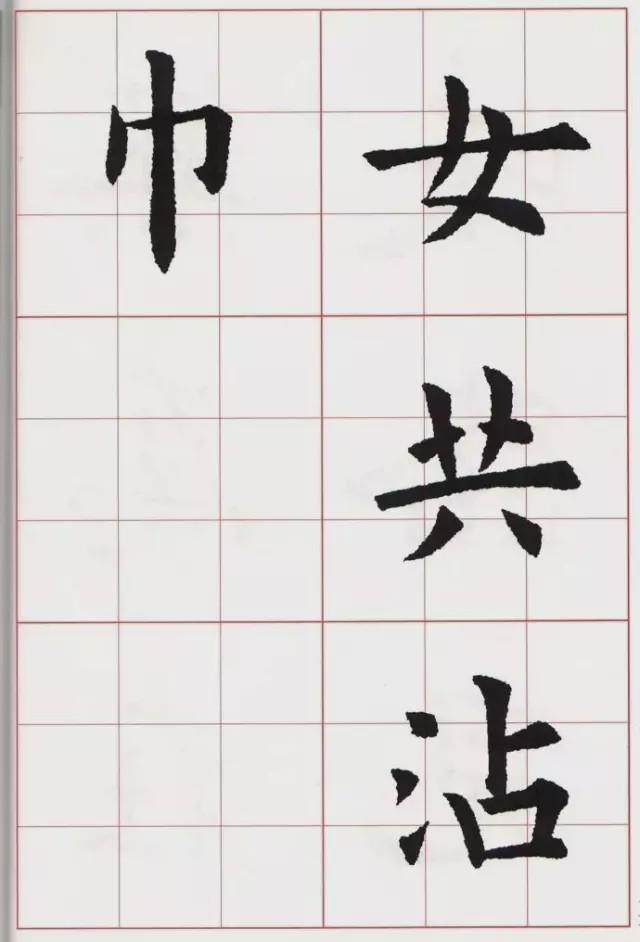 女共沾
巾